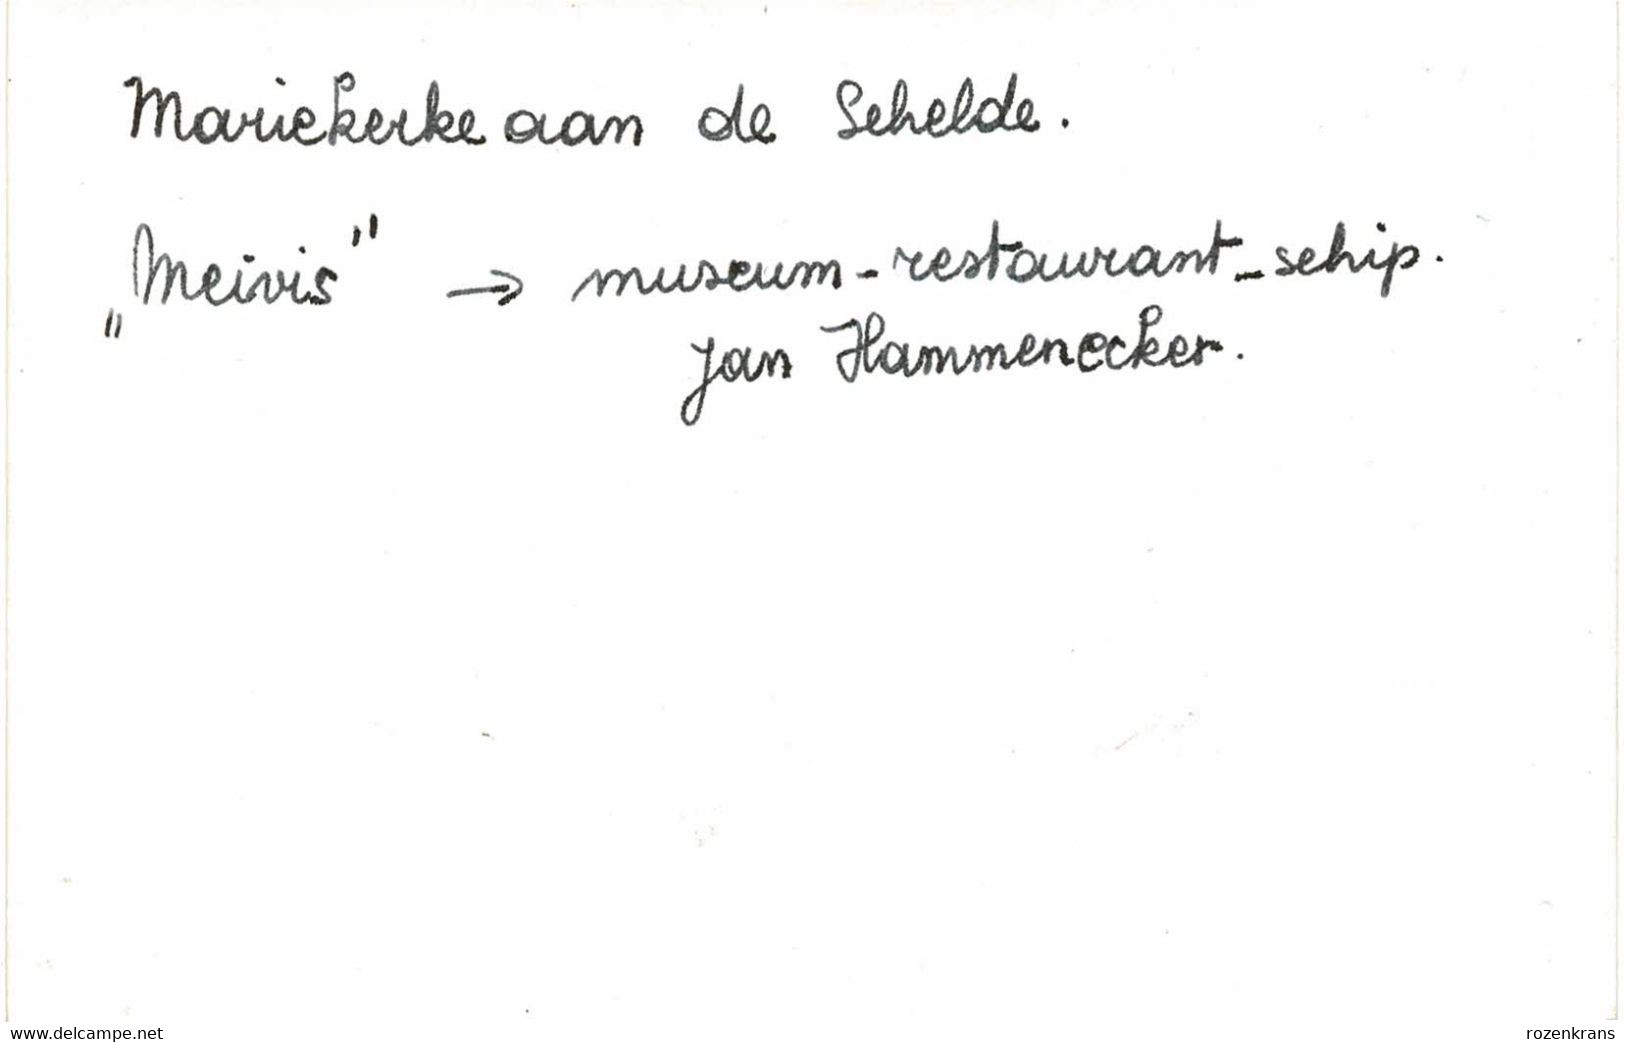 Mariekerke aan de Schelde.
„Meivis" → museum-restaurant-schip.
Jan Hammenecker.
www.delcampe.net
rozenkrans